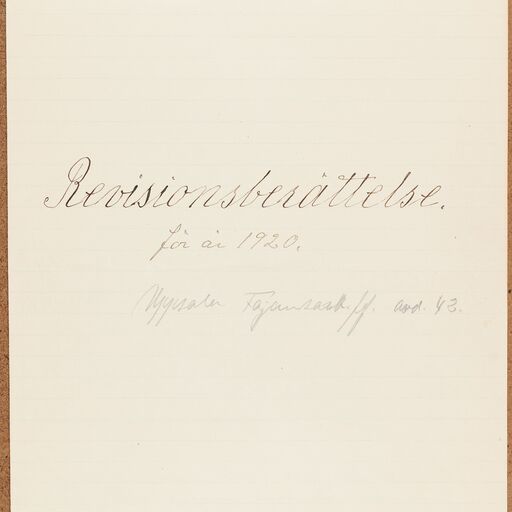 Revisionsberättelse.
för år 1920.
Uppsala avd. 43.